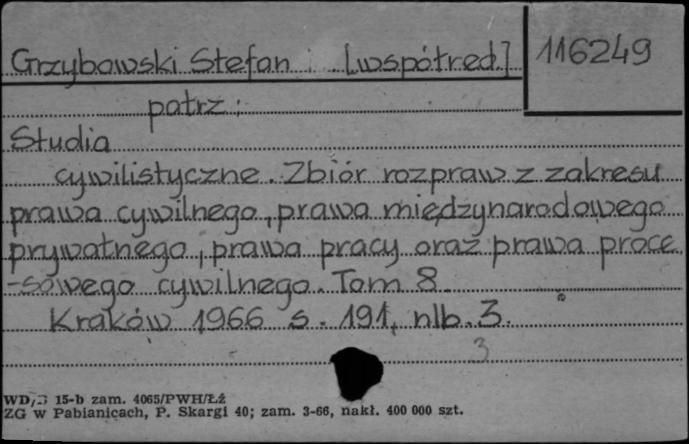 Grzybowski Stefan [współred.]
116249
patrz:
Studia
cywilistyczne. Zbiór rozpraw z zakresu
prawa cywilnego, prawa międzynarodowego
prywatnego, prawa pracy oraz prawa proce
-sowego cywilnego. Tom 8.
Kraków 1966 s. 191, nlb. 3.
3
15-b zam. 4065/PWH/Łż
ZG w Pabianicach, P. Skargi 40; zam. 3-66, nakł. 400 000 szt.